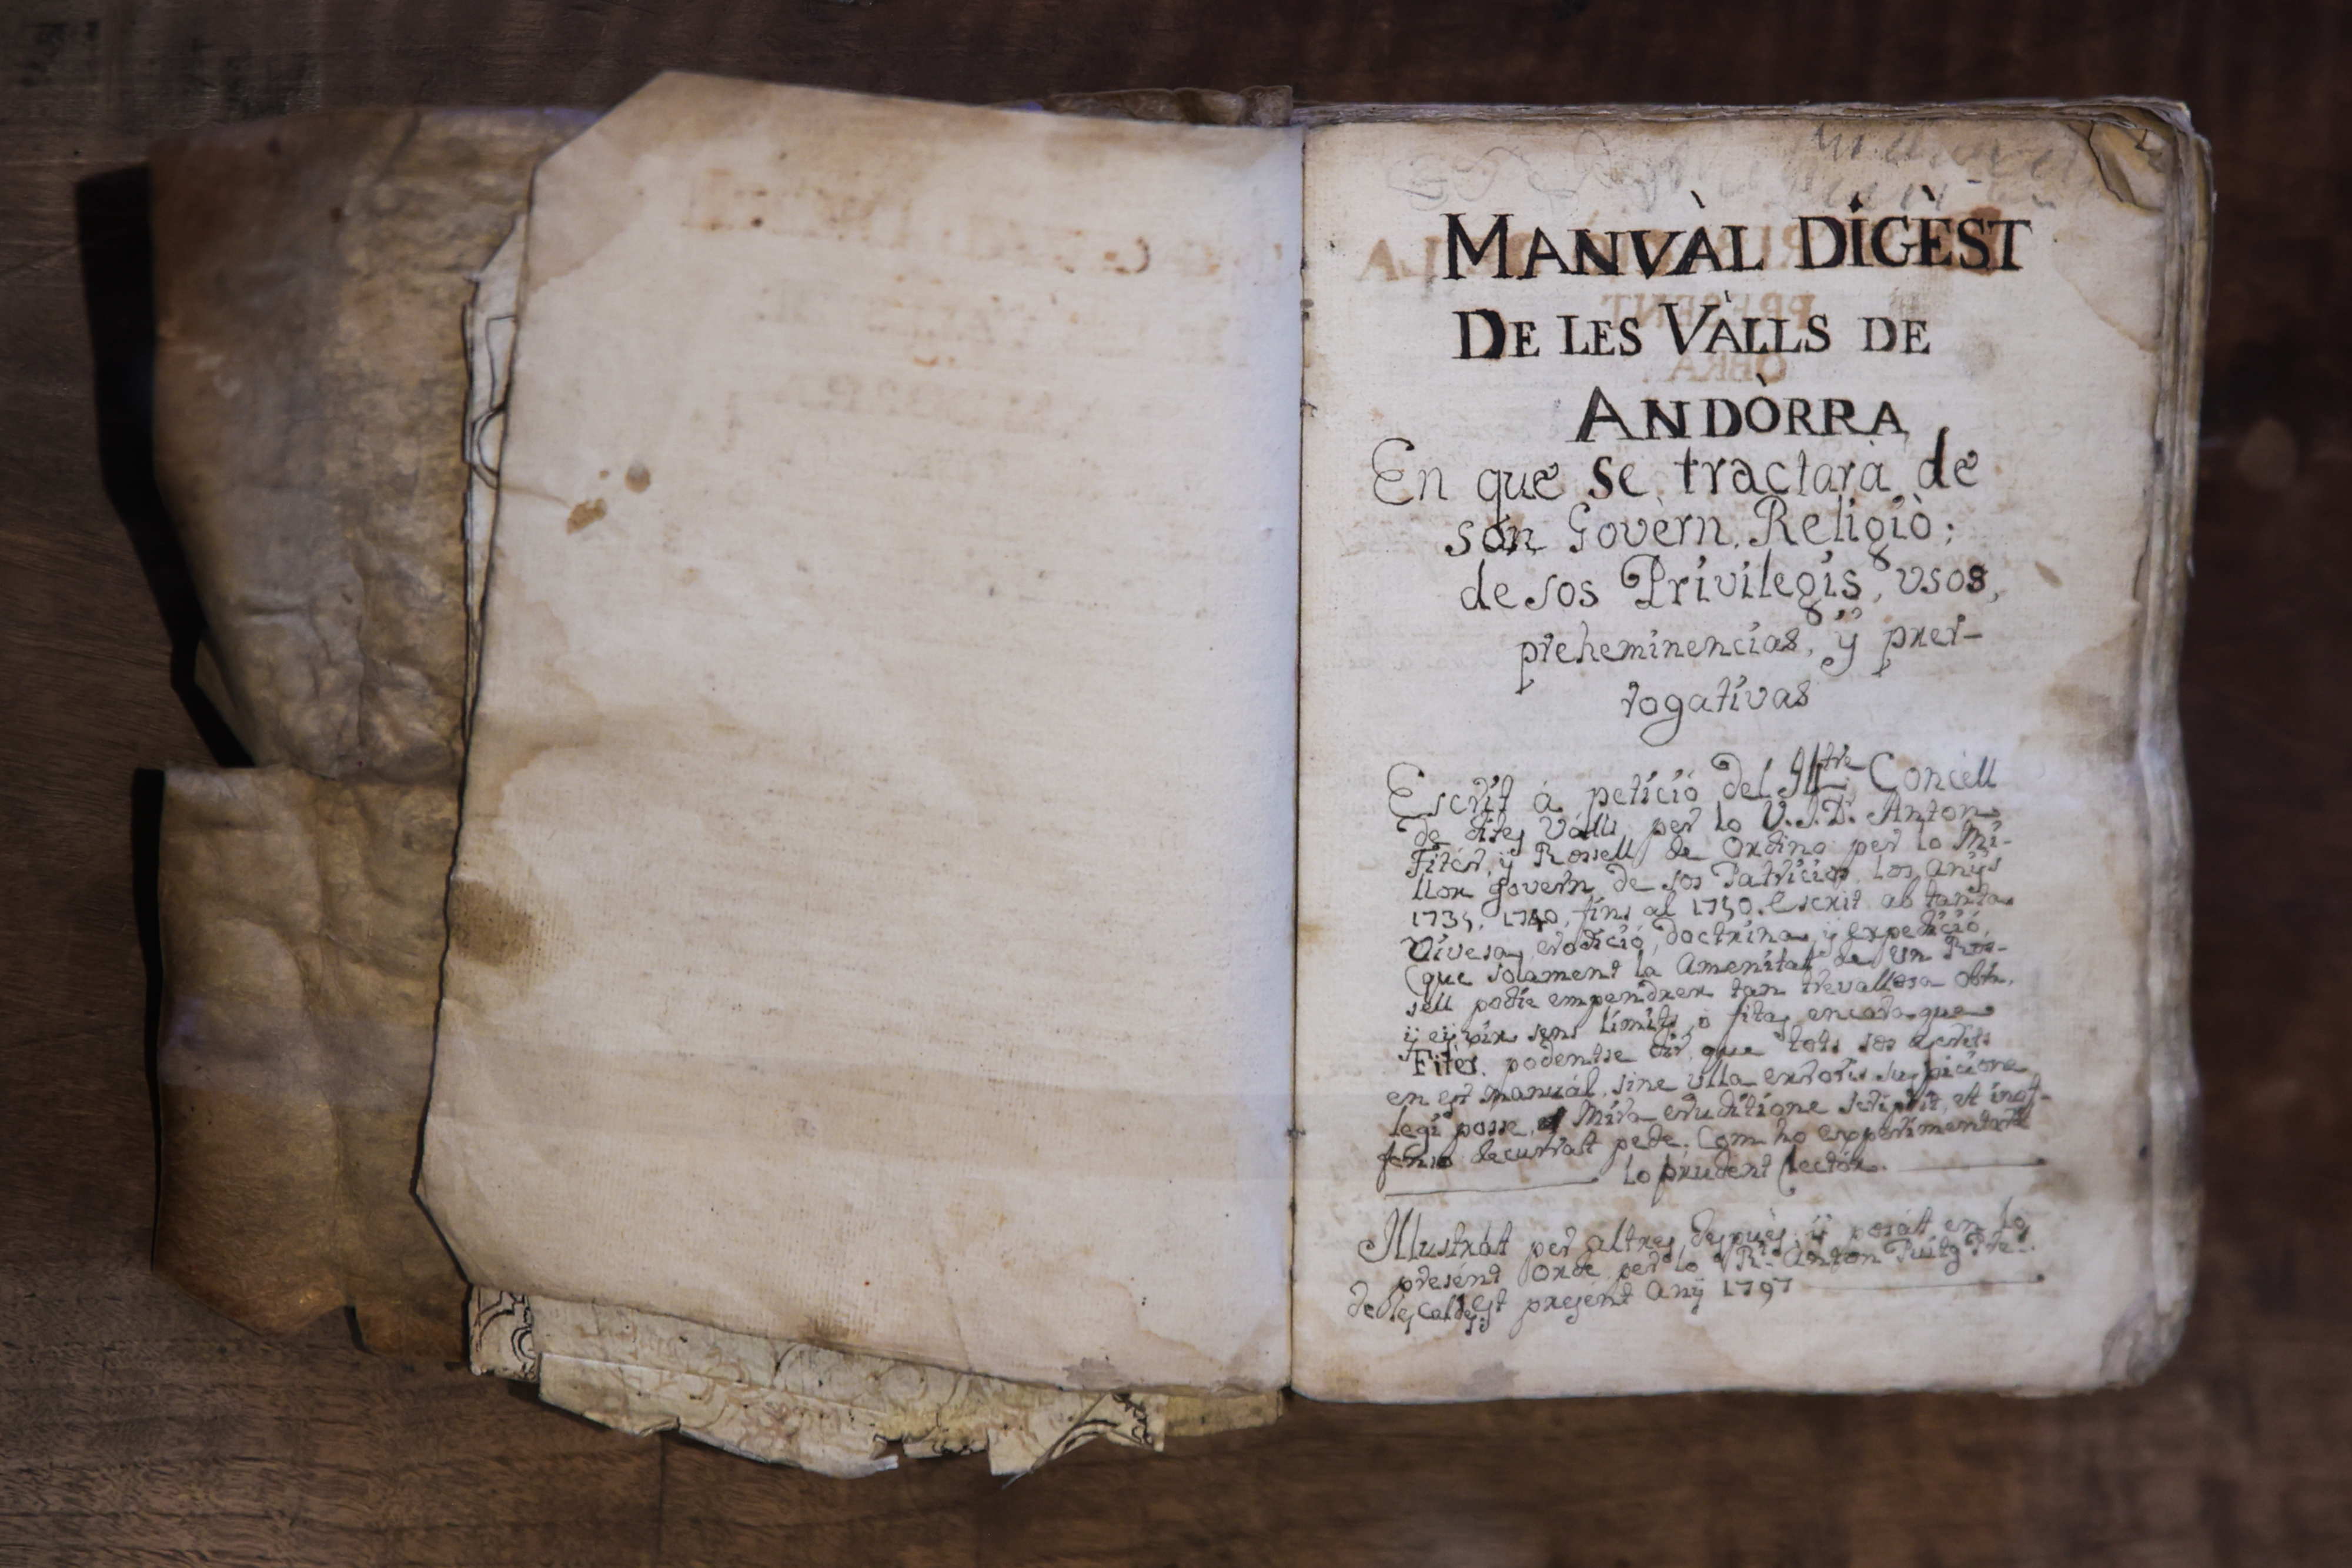 MANVÀL DIGÈST
DE LES VÀLLS DE
ANDÒRRA
En que se tractarà de
son Govèrn, Religiò;
de sos Privilegis, vsos,
preheminencias, ÿ prer-
rogativas
Escrit á petició del Illtre Concell
de dites Valls per lo V.J.D. Anton
Fiter, ÿ Rossell de Ordino per lo Mi-
llor govern de sos Patricios los anÿs
1735, 1740, fins al 1750. Escrit ab tanta
Vivesa, erodició, doctrina, ÿ expedició,
que solament la Amenitat de un Ros-
sell podie empendrer tan trevallosa Obra,
ÿ sens limits, o fitas encara que
Fiter. podentse dir que tots sos escrits
en est manuál, sine ulla erroris suspicione
legi posse, Mira eruditione scripsit, et inof-
fenso decurrat pede. Com ho experimentara
lo prudent lector.
Illustrát per altres després, ÿ posát en lo
presént Orde per lo Rt. Anton Puitg Pre.
de les Caldes. Est presént Anÿ 1797